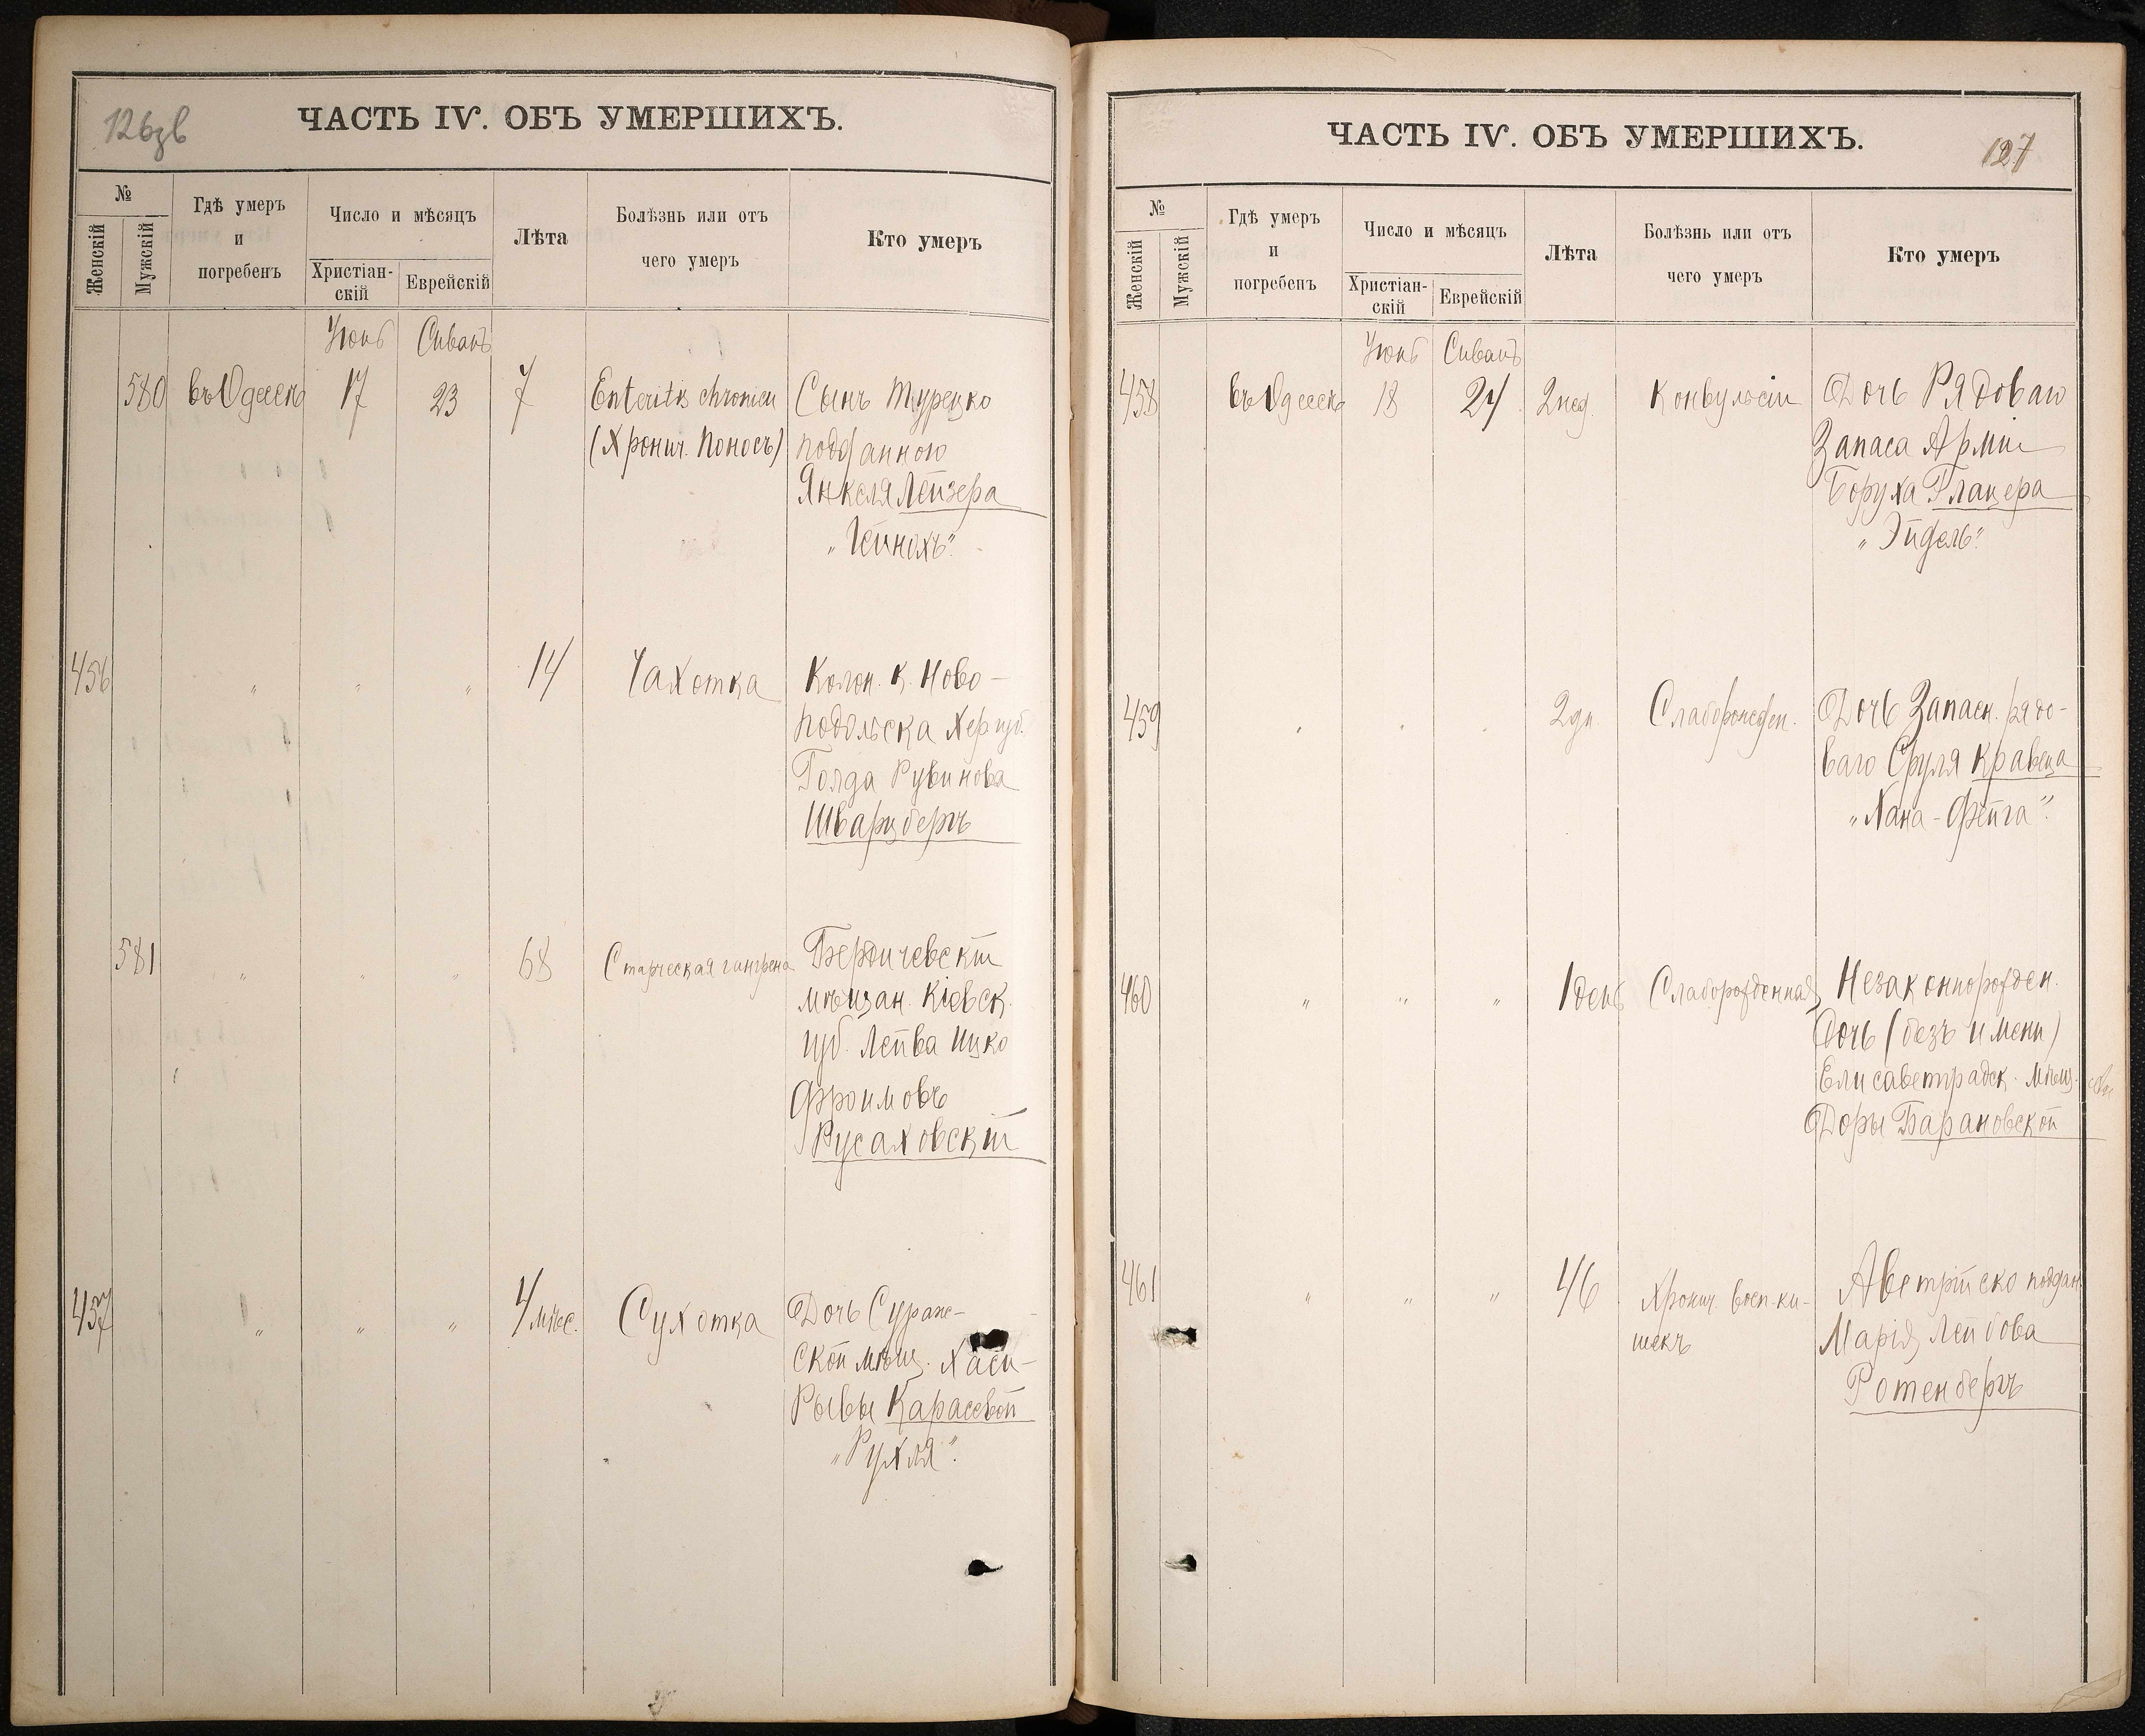 126зв
ЧАСТЬ IV. ОБЪ УМЕРШИХЪ.
№
Женскій
Мужскій
Гдѣ умеръ
и
погребенъ
Число и мѣсяцъ
Христіан-
скій
Еврейскій
Лѣта
Болѣзнь или отъ
чего умеръ
Кто умеръ
Іюнь Сиванъ
580 въ Одессѣ 17 23 7 Enteritis chronica Сынъ Турецко
(Хронич. поносъ) подданного
Янкеля Лейзера
„Гейнохъ“.
456 „ „ „ 14 Чахотка Колон. к. Ново-
подольска Хер. губ.
Голда Рувинова
Шварцбергъ
581 „ „ „ 68 Старческая гангрена Бердичевскій
мѣщан. Кіевск.
губ. Лейва Ицко
Фроимовъ
Русаховскій
457 „ „ „ 4 мѣс. Сухотка Дочь Сураж-
ской мѣщ. Хаси-
Рывы Карасевой
„Рухля“.
127
ЧАСТЬ IV. ОБЪ УМЕРШИХЪ.
№
Женскій
Мужскій
Гдѣ умеръ
и
погребенъ
Число и мѣсяцъ
Христіан-
скій
Еврейскій
Лѣта
Болѣзнь или отъ
чего умеръ
Кто умеръ
Іюнь Сиванъ
458 въ Одессѣ 18 24 2 нед. Конвульсіи Дочь Рядоваго
Запаса Арміи
Боруха Глацера
„Эйдель“.
459 „ „ „ 2 дн. Слаборожден. Дочь Запасн. рядо-
ваго Сруля Кравеца
„Хана-Фейга“.
460 „ „ „ 1 день Слаборожденная Незаконнорожден.
Дочь (безъ имени)
Елисаветградск. мѣщ.
Доры Барановской
461 „ „ „ 46 Хронич. восп. ки- Австрійско поддан.
шекъ Марія Лейбова
Ротенбергъ